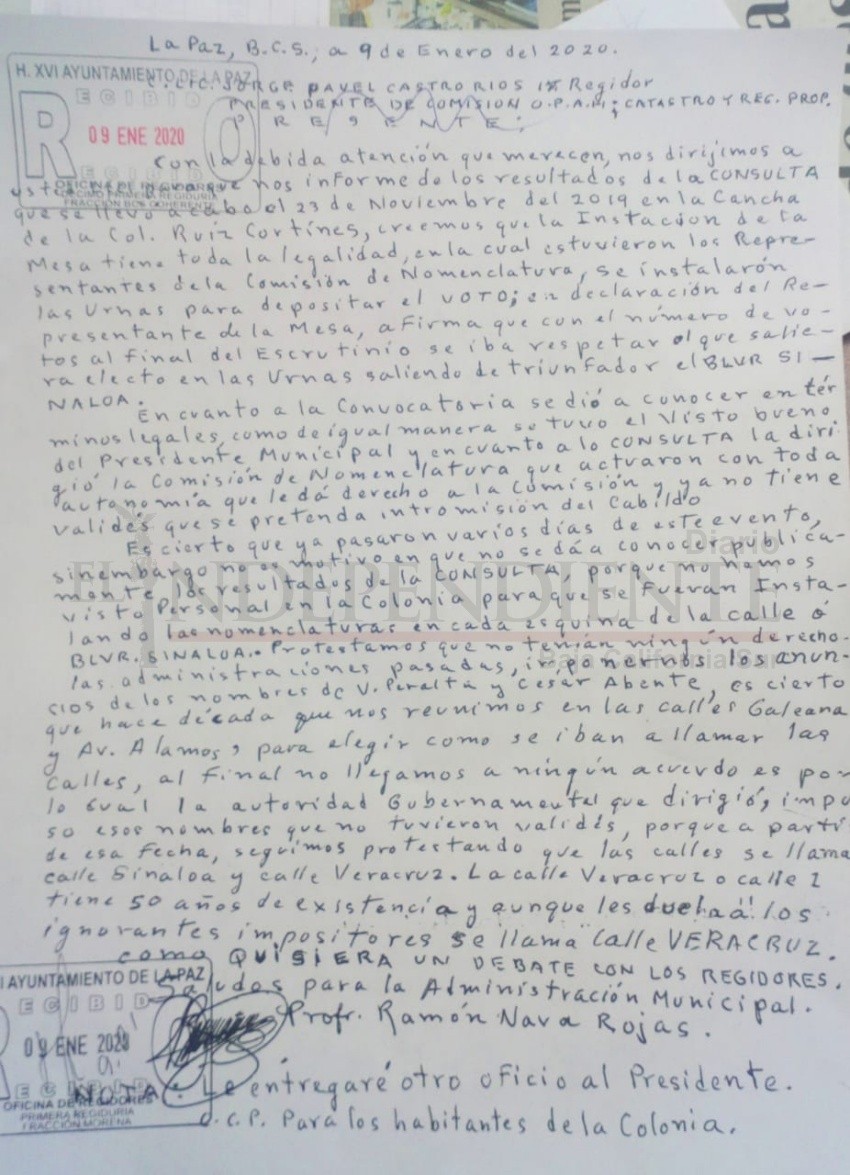 La Paz, B.C.S.; a 9 de Enero del 2020.
H. XVI AYUNTAMIENTO DE LA PAZ
C. Lic. JORGE PAVEL CASTRO RIOS 1x Regidor
PRESIDENTE DE COMISION O.P.A.M.; CATASTRO Y REG. PROP.
RECIBIDO
P R E S E N T E:
09 ENE 2020
Con la debida atención que merecen, nos dirijimos a
RECIBIDO
OFICINA DE REGIDORES
PRIMERA REGIDURIA
FRACCIÓN
usted para que nos informe de los resultados de la CONSULTA
que se llevó a cabo el 23 de Noviembre del 2019 en la Cancha
de la Col. Ruiz Cortínes, creemos que la Instacion de la
Mesa tiene toda la legalidad, en la cual estuvieron los Repre-
sentantes de la Comisión de Nomenclatura, se instalarón
las Urnas para depositar el VOTO; en declaración del Re-
presentante de la Mesa, afirma que con el número de vo-
tos al final del Escrutinio se iba respetar el que salie-
ra electo en las Urnas saliendo de triunfador el BLVR SI-
NALOA.
En cuanto a la Convocatoria se dió a conocer en tér
minos legales, como de igual manera se tuvo el Visto bueno
del Presidente Municipal y en cuanto a lo CONSULTA la diri-
gió la Comisión de Nomenclatura que actuaron con toda
autonomía que le dá derecho a la Comisión y ya no tiene
validés que se pretenda intromisión del Cabildo
Es cierto que ya pasaron varios días de este evento,
sinembargo no es motivo en que no se dá a conocer publica-
mente los resultados de la CONSULTA, porque no hemos
visto Personal en la Colonia para que se fueran Insta-
lando las nomenclaturas en cada esquina de la calle ó
BLVR. SINALOA. Protestamos que no tenían ningún derecho
las administraciones pasadas, imponernos los anun-
cios de los nombres de V. Peralta y Cesar Abente, es cierto
que hace década que nos reunimos en las calles Galeana
y Av. Alamos, para elegir como se iban a llamar las
calles, al final no llegamos a ningún acuerdo es por
lo cual la autoridad Gubernamental que dirigió, impu
so esos nombres que no tuvieron validés, porque a parti
de esa fecha, seguimos protestando que las calles se llama
calle Sinaloa y calle Veracruz. La calle Veracruz o calle 2
tiene 50 años de existencia y aunque les duela á los
ignorantes impositores se llama Calle VERACRUZ.
como QUISIERA UN DEBATE CON LOS REGIDORES.
Saludos para la Administración Municipal.
Profr. Ramón Nava Rojas.
I AYUNTAMIENTO DE LA PAZ
RECIBIDO
09 ENE 2020
RECIBIDO
OFICINA DE REGIDORES
PRIMERA REGIDURIA
FRACCIÓN MORENA
NOTA: Le entregaré otro oficio al Presidente.
C.C.P. Para los habitantes de la Colonia.
Diario
EL INDEPENDIENTE
Baja California Sur